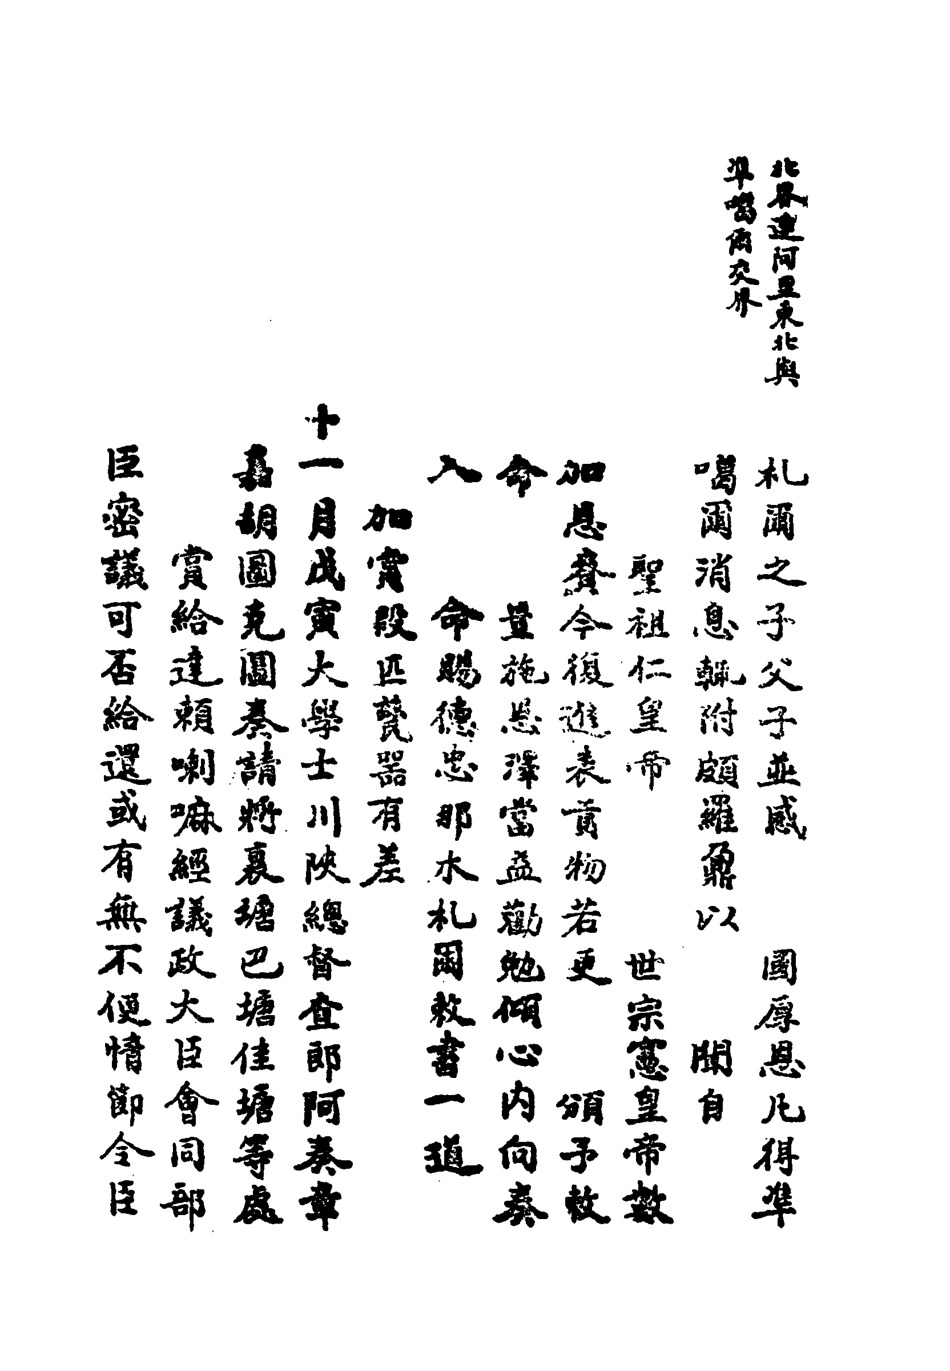 北界連阿里東北與
準噶爾交界
札爾之子父子並感　國厚恩凡得準
噶爾消息輒附頗羅鼐以　聞自
聖祖仁皇帝　世宗憲皇帝數
加恩賚今復進表貢物若更　頒予敕
命　量施恩澤當益勸勉傾心內向奏
入　命賜德忠那木札爾敕書一道
加賞段匹甆器有差
十一月戊寅大學士川陝總督查郎阿奏章
嘉胡圖克圖奏請將裏塘巴塘佳塘等處
賞給達賴喇嘛經議政大臣會同部
臣密議可否給還或有無不便情節令臣